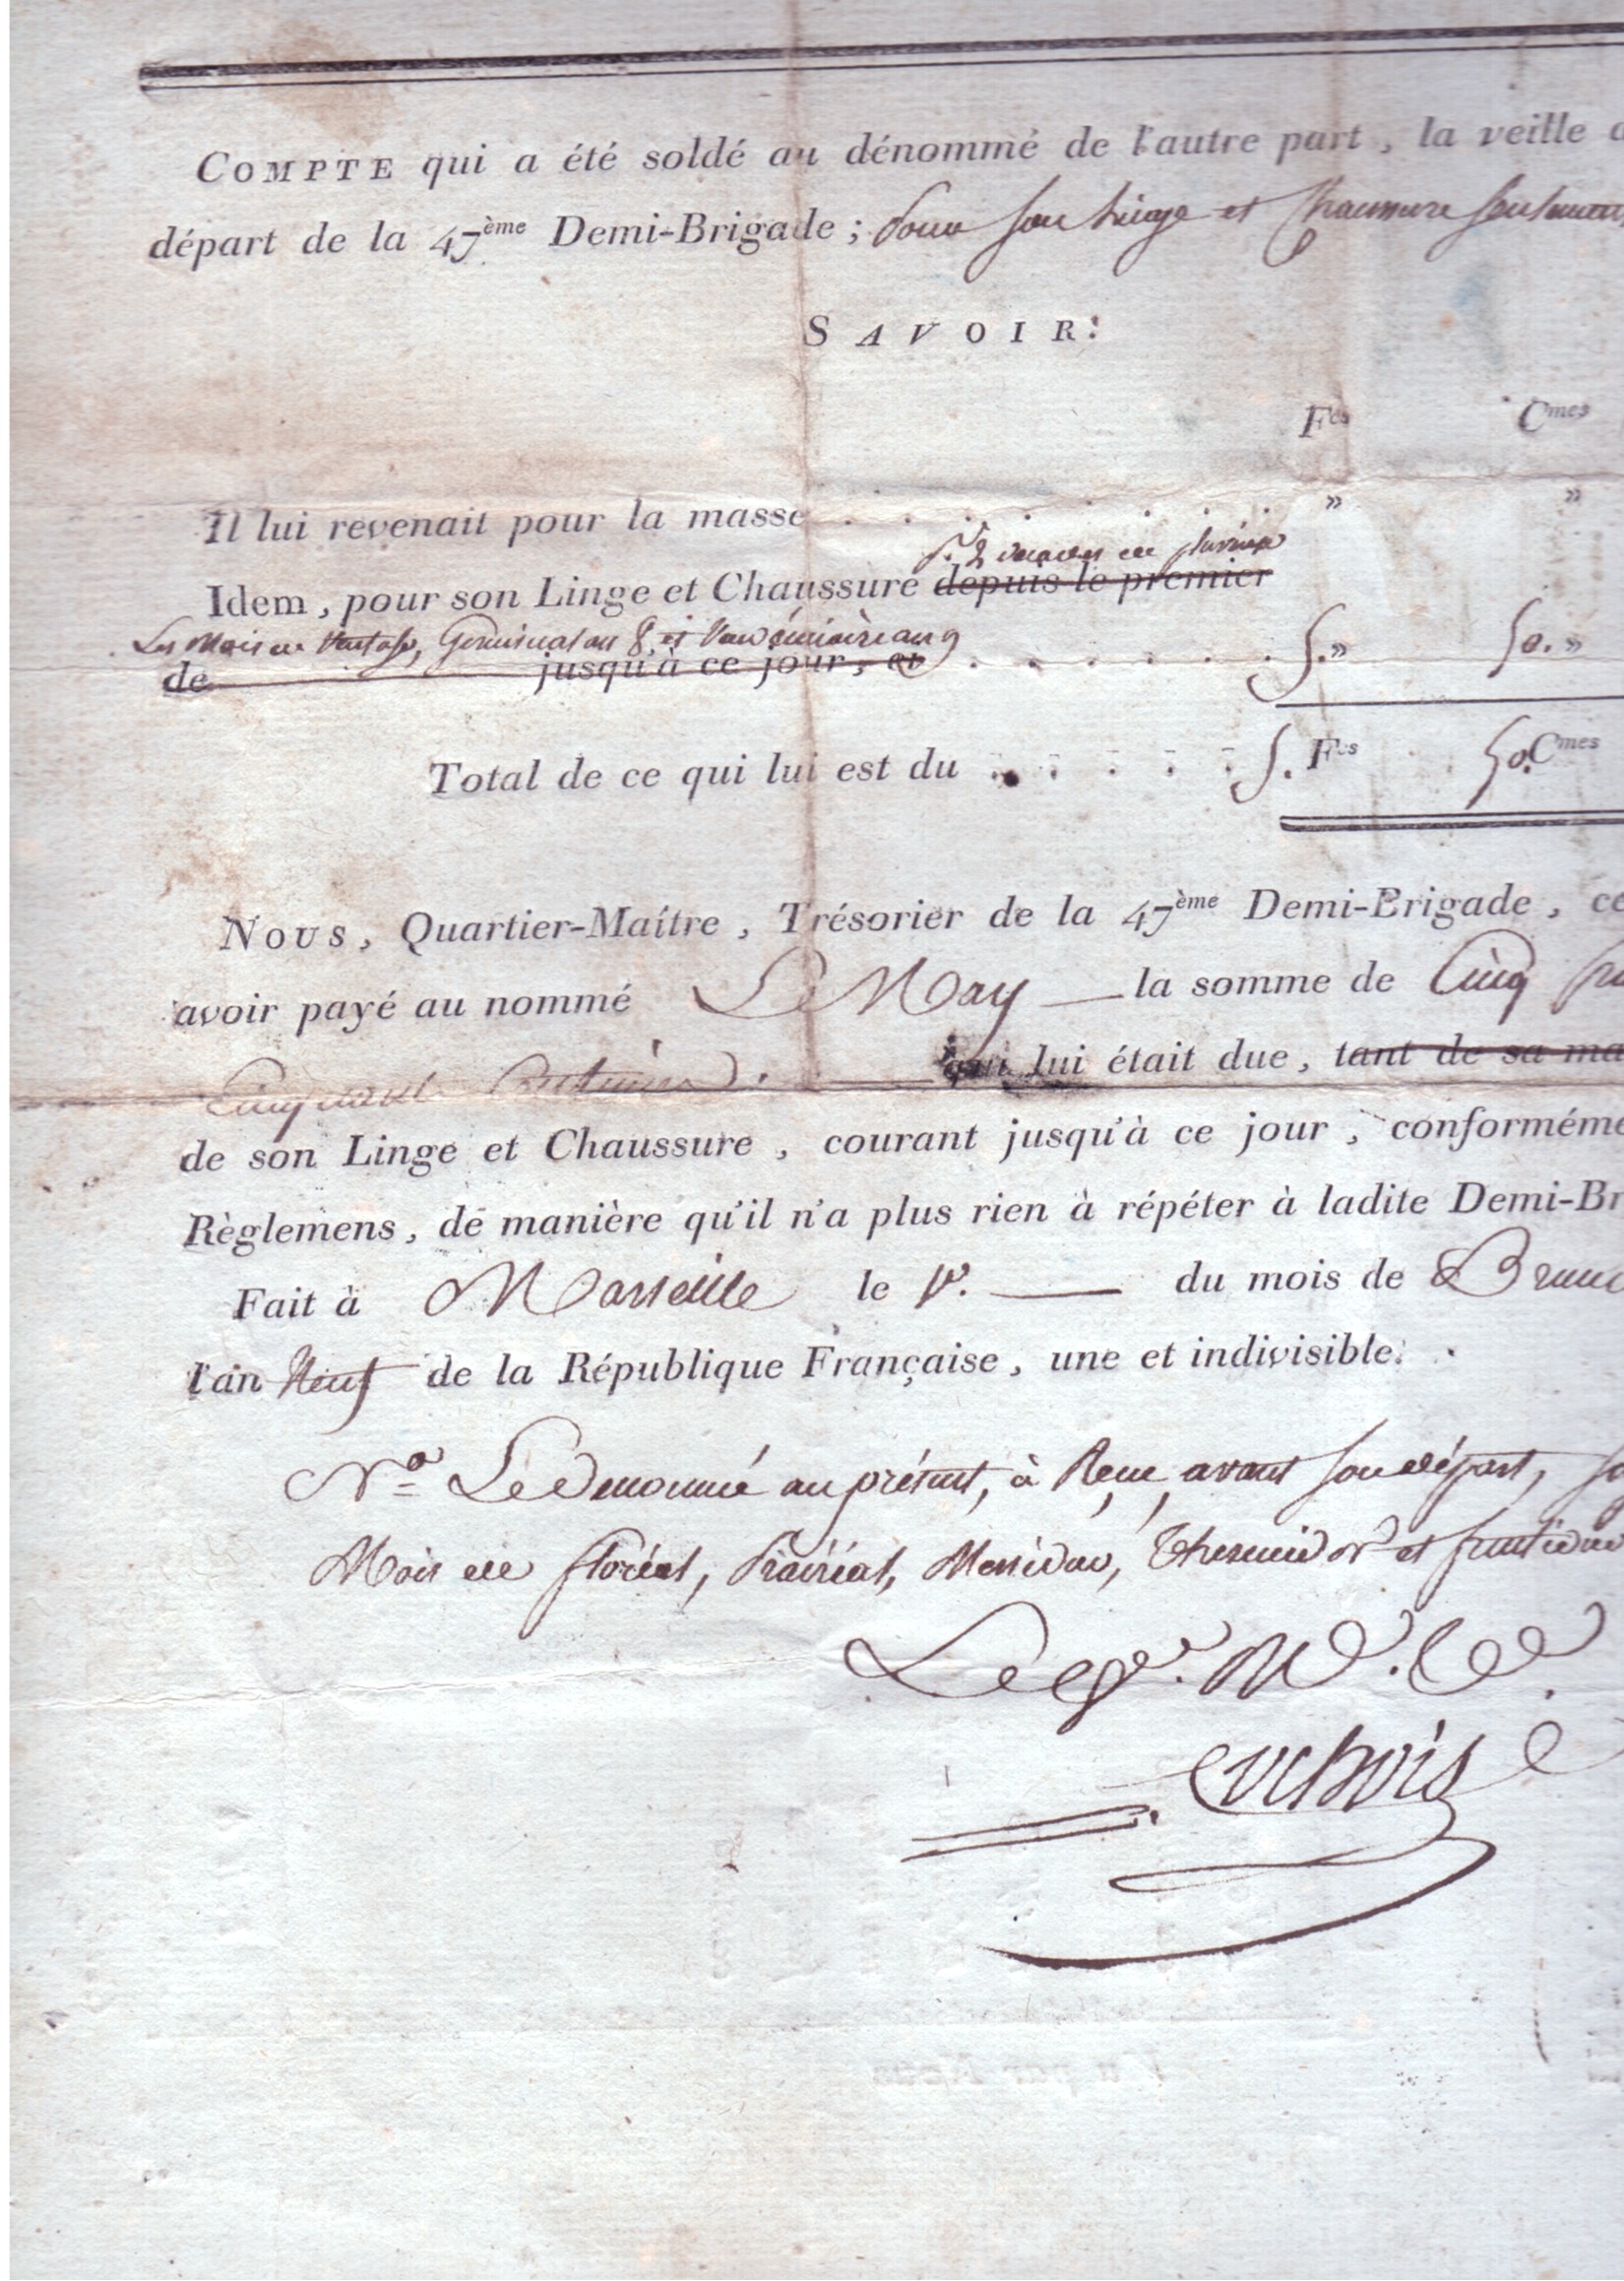 COMPTE qui a été soldé au dénommé de l'autre part, la veille d
départ de la 47ème Demi-Brigade ; pour son Linge et Chaussure seulement,
SAVOIR:
Fcs Cmes
Il lui revenait pour la masse . . . . . . . . » »
pr. 2 en pluviose
Idem, pour son Linge et Chaussure depuis le premier
Les Mois de Ventose, Germinal an 8, et Vendémiaire an 9
de jusqu'à ce jour, et . . . . . . 5.» 50.»
Total de ce qui lui est du . . . . . 5. Fcs 50. Cmes
NOUS, Quartier-Maître, Trésorier de la 47ème Demi-Brigade, ce
avoir payé au nommé Le May — la somme de Cinq fr
Cinquante Centimes. — qui lui était due, tant de sa ma
de son Linge et Chaussure, courant jusqu'à ce jour, conforméme
Règlemens, de manière qu'il n'a plus rien à répéter à ladite Demi-Br
Fait à Marseille le 1er. — du mois de Brum
l'an Neuf de la République Française, une et indivisible.
Na Le Denommé au présent, à Reçu, avant son départ,
Mois de floréal, Prairial, Messidor, Thermidor et fructidor
Le qr. Me.